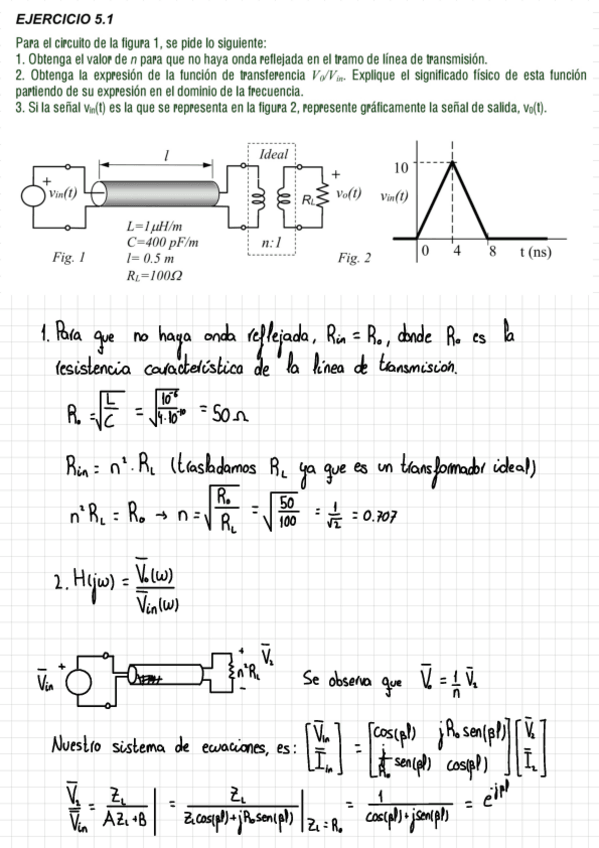 EJERCICIO 5.1
Para el circuito de la figura 1, se pide lo siguiente:
1. Obtenga el valor de n para que no haya onda reflejada en el tramo de línea de transmisión.
2. Obtenga la expresión de la función de transferencia V₀/Vᵢₙ. Explique el significado físico de esta función
partiendo de su expresión en el dominio de la frecuencia.
3. Si la señal vᵢₙ(t) es la que se representa en la figura 2, represente gráficamente la señal de salida, v₀(t).
l
Ideal
+
vin(t)
RL
+
vo(t)
n:1
L=1μH/m
C=400 pF/m
l= 0.5 m
RL=100Ω
Fig. 1
10
vin(t)
0 4 8 t (ns)
Fig. 2
1. Para que no haya onda reflejada, Rin = R₀, donde R₀ es la
resistencia característica de la línea de transmisión.
R₀ = √(L/C) = √(10⁻⁶/4·10⁻¹⁰) = 50 Ω
Rin = n²·RL (trasladamos RL ya que es un transformador ideal)
n²RL = R₀ → n = √(R₀/RL) = √(50/100) = 1/√2 = 0.707
2. H(jω) = V̄₀(ω)/V̄in(ω)
V̄in + n²RL + - V̄₂
Se observa que V̄₀ = 1/n V̄₂
Nuestro sistema de ecuaciones, es: [V̄in Īin] = [cos(βl) jR₀sen(βl) j 1/R₀ sen(βl) cos(βl)] [V̄₂ Ī₂]
V̄₂/V̄in = ZL/(AZL+B) | = ZL/(ZLcos(βl)+jR₀sen(βl)) | ZL=R₀ = 1/(cos(βl)+jsen(βl)) = e^jβl